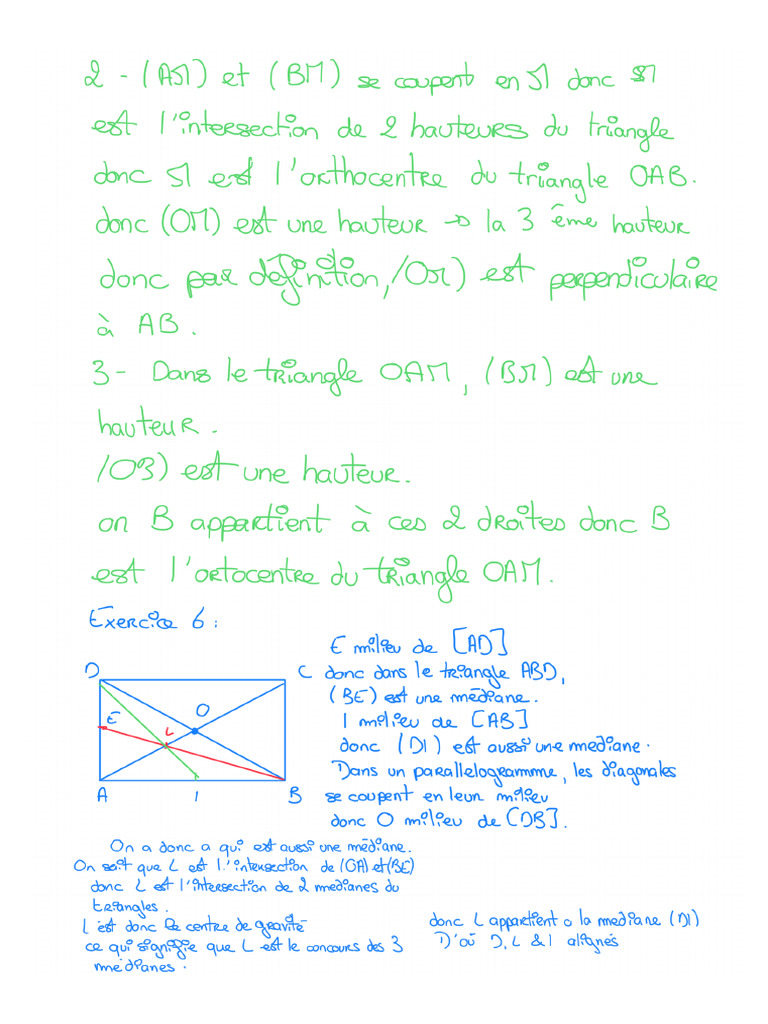 2 - (AM) et (BM) se coupent en M donc M
est l'intersection de 2 hauteurs du triangle
donc M est l'orthocentre du triangle OAB.
donc (OM) est une hauteur → la 3 ème hauteur
donc par définition, (OM) est perpendiculaire
à AB.
3 - Dans le triangle OAM, (BM) est une
hauteur.
(OB) est une hauteur.
on B appartient à ces 2 droites donc B
est l'ortocentre du triangle OAM.
Exercice 6 :
E milieu de [AD]
donc dans le triangle ABD,
(BE) est une médiane.
I milieu de [AB]
donc (DI) est aussi une mediane.
Dans un parallelogramme, les diagonales
se coupent en leur milieu
donc O milieu de [DB].
D
C
E
O
L
A
I
B
On a donc a qui est aussi une médiane.
On sait que L est l'intersection de (OA) et (BE)
donc L est l'intersection de 2 medianes du
triangles.
L est donc le centre de gravité
ce qui signifie que L est le concours des 3
médianes.
donc L appartient a la mediane (DI)
D'où D, L & I alignés